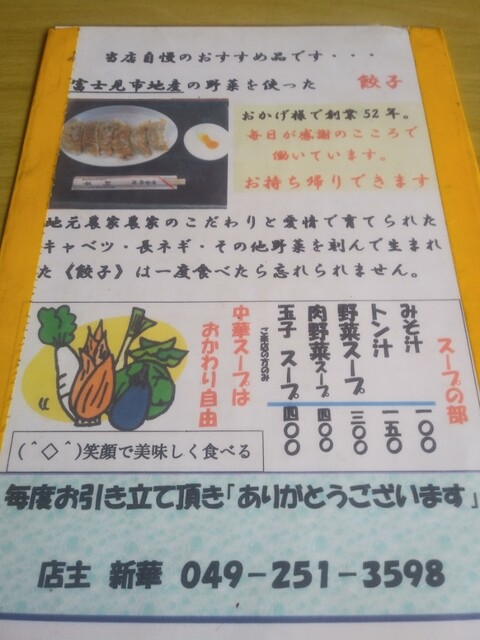 当店自慢のおすすめ品です・・・
富士見市地産の野菜を使った 餃子
おかげ様で創業52年。
毎日が感謝のこころで
働いています。
お持ち帰りできます
地元農家農家のこだわりと愛情で育てられた
キャベツ・長ネギ・その他野菜を刻んで生まれ
た《餃子》は一度食べたら忘れられません。
スープの部
みそ汁 一〇〇
トン汁 一五〇
野菜スープ 三〇〇
肉野菜スープ 四〇〇
玉子 スープ 四〇〇
ご来店の方のみ
中華スープは
おかわり自由
(＾◇＾)笑顔で美味しく食べる
毎度お引き立て頂き「ありがとうございます」
店主 新華 049－251－3598